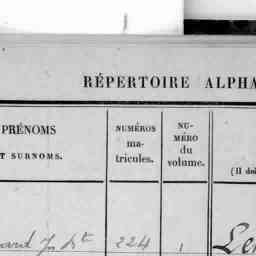 RÉPERTOIRE ALPHA
PRÉNOMS
T SURNOMS.
NUMÉROS
ma-
tricules.
NU-
MÉRO
du
volume.
(Il doi
224 1